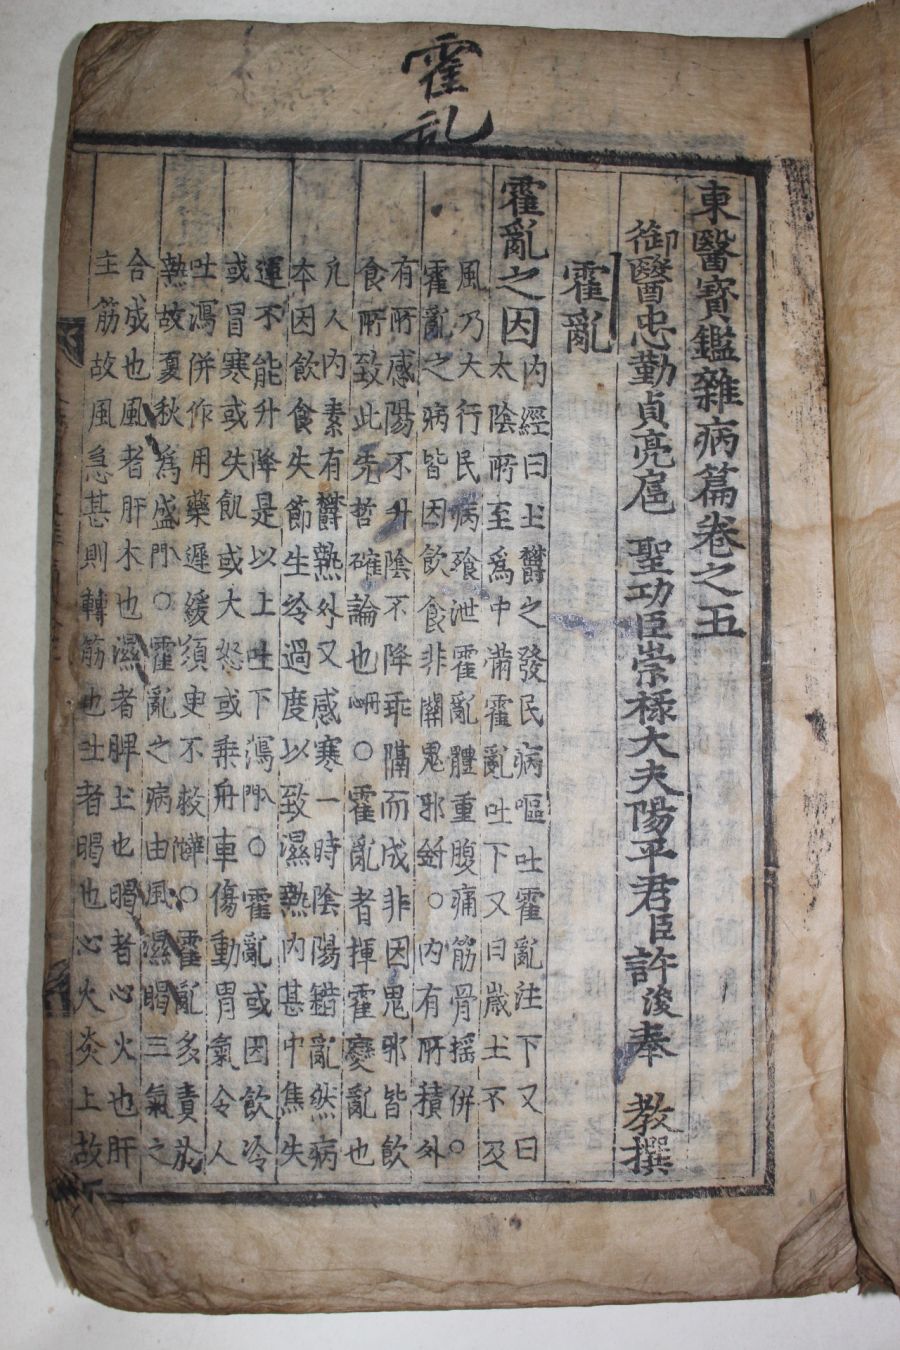 霍乱
東醫寶鑑雜病篇卷之五
御醫忠勤貞亮扈 聖功臣崇祿大夫陽平君臣許浚奉 教撰
霍亂
霍亂之因
內經曰土鬱之發民病嘔吐霍亂注下又曰
太陰所至爲中滿霍亂吐下又曰歲土不及
風乃大行民病飱泄霍亂體重腹痛筋骨搖併○
霍亂之病皆因飮食非關鬼邪千金○內有所積外
有所感陽不升陰不降乖隔而成非因鬼邪皆飮
食所致此先哲確論也丹心○霍亂者揮霍變亂也
凡人內素有鬱熱外又感寒一時陰陽錯亂然病
本因飮食失節生冷過度以致濕熱內甚中焦失
運不能升降是以上吐下瀉入門○霍亂或因飮冷
或冒寒或失飢或大怒或乘舟車傷動胃氣令人
吐瀉併作用藥遲緩須臾不救○霍亂多責於
熱故夏秋爲盛入門○霍亂之病由風濕暍三氣之
合成也風者肝木也濕者脾土也暍者心火也肝
主筋故風急甚則轉筋也吐者暍也心火炎上故